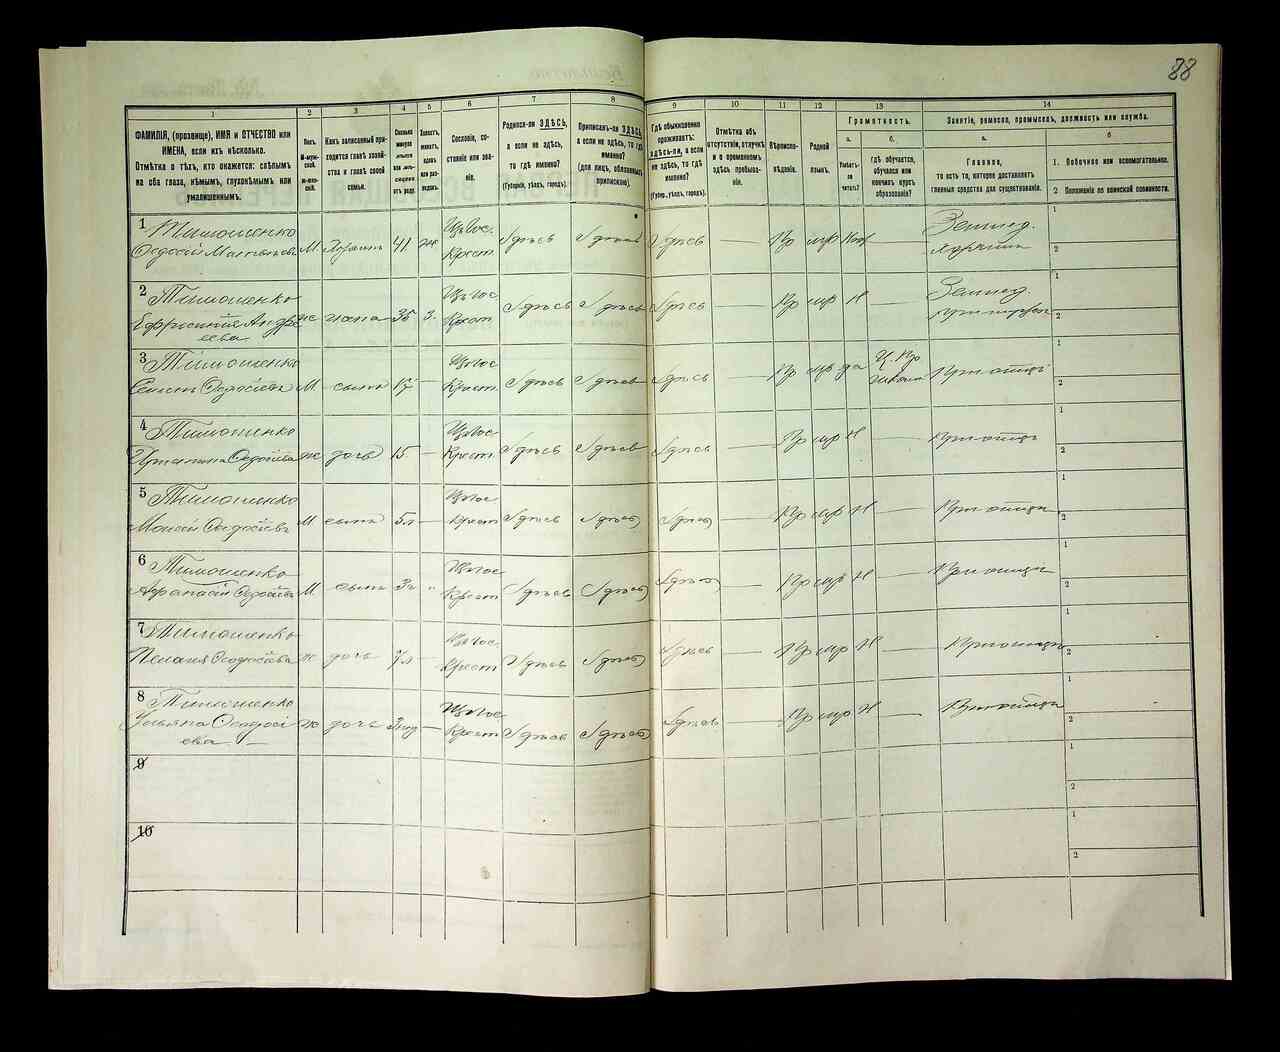 88
1
2
3
4
5
6
7
8
9
10
11
12
13
14
ФАМИЛІЯ, (прозвище), ИМЯ и ОТЧЕСТВО или
ИМЕНА, если ихъ нѣсколько.
Отмѣтка о тѣхъ, кто окажется: слѣпымъ
на оба глаза, нѣмымъ, глухонѣмымъ или
умалишеннымъ.
Полъ.
М-мужской.
Ж-женскій.
Какъ записанный приходится главѣ хозяйства и главѣ своей семьи.
Сколько минуло лѣтъ или мѣсяцевъ отъ роду.
Холостъ, женатъ, вдовъ или разведенъ.
Сословіе, состояніе или званіе.
Родился-ли ЗДѢСЬ,
а если не здѣсь,
то гдѣ именно?
(Губернія, уѣздъ, городъ).
Приписанъ-ли ЗДѢСЬ,
а если не здѣсь, то гдѣ
именно?
(для лицъ, обязанныхъ
припискою).
Гдѣ обыкновенно
проживаетъ:
здѣсь-ли, а если
не здѣсь, то гдѣ
именно?
(Губер., уѣздъ, городъ).
Отмѣтка объ
отсутствіи, отлучкѣ
и о временномъ
здѣсь пребываніи.
Вѣроисповѣданіе.
Родной
языкъ.
Грамотность.
а.
б.
Умѣетъ-ли читать?
гдѣ обучается,
обучался или
кончилъ курсъ
образованія?
Занятіе, ремесло, промыселъ, должность или служба.
а.
б.
Главное,
то есть то, которое доставляетъ
главныя средства для существованія.
1. Побочное или вспомогательное.
2 Положеніе по воинской повинности.
1 Тимошенко
М 41 Изъ гос. Крест. Здѣсь Здѣсь Здѣсь — Пр мр Землед.
1
2
2 Тимошенко
Ефросинія Андреева ж жена 36 З. Изъ гос Крест Здѣсь Здѣсь Здѣсь — Пр мр Н — Землед.
1
2
3 Тимошенко
М сынъ — Изъ гос Крест. Здѣсь Здѣсь Здѣсь — Пр мр да При отцѣ
1
2
4 Тимошенко
ж дочь 15 — Изъ гос Крест. Здѣсь Здѣсь Здѣсь — Пр мр Н — При отцѣ
1
2
5 Тимошенко
М сынъ 5 л — Изъ гос Крест Здѣсь Здѣсь Здѣсь — Пр мр Н — При отцѣ
1
2
6 Тимошенко
Афанасій М сынъ Изъ гос Крест Здѣсь Здѣсь Здѣсь — Пр мр Н — При отцѣ
1
2
7 Тимошенко
Пелагія Феодосіева ж дочь — Изъ гос Крест Здѣсь Здѣсь Здѣсь — Пр мр Н — При отцѣ
1
2
8 Тимошенко
Ульяна Феодосіева — ж дочь — Изъ гос Крест Здѣсь Здѣсь Здѣсь — Пр мр Н — При отцѣ
1
2
9
1
2
10
1
2